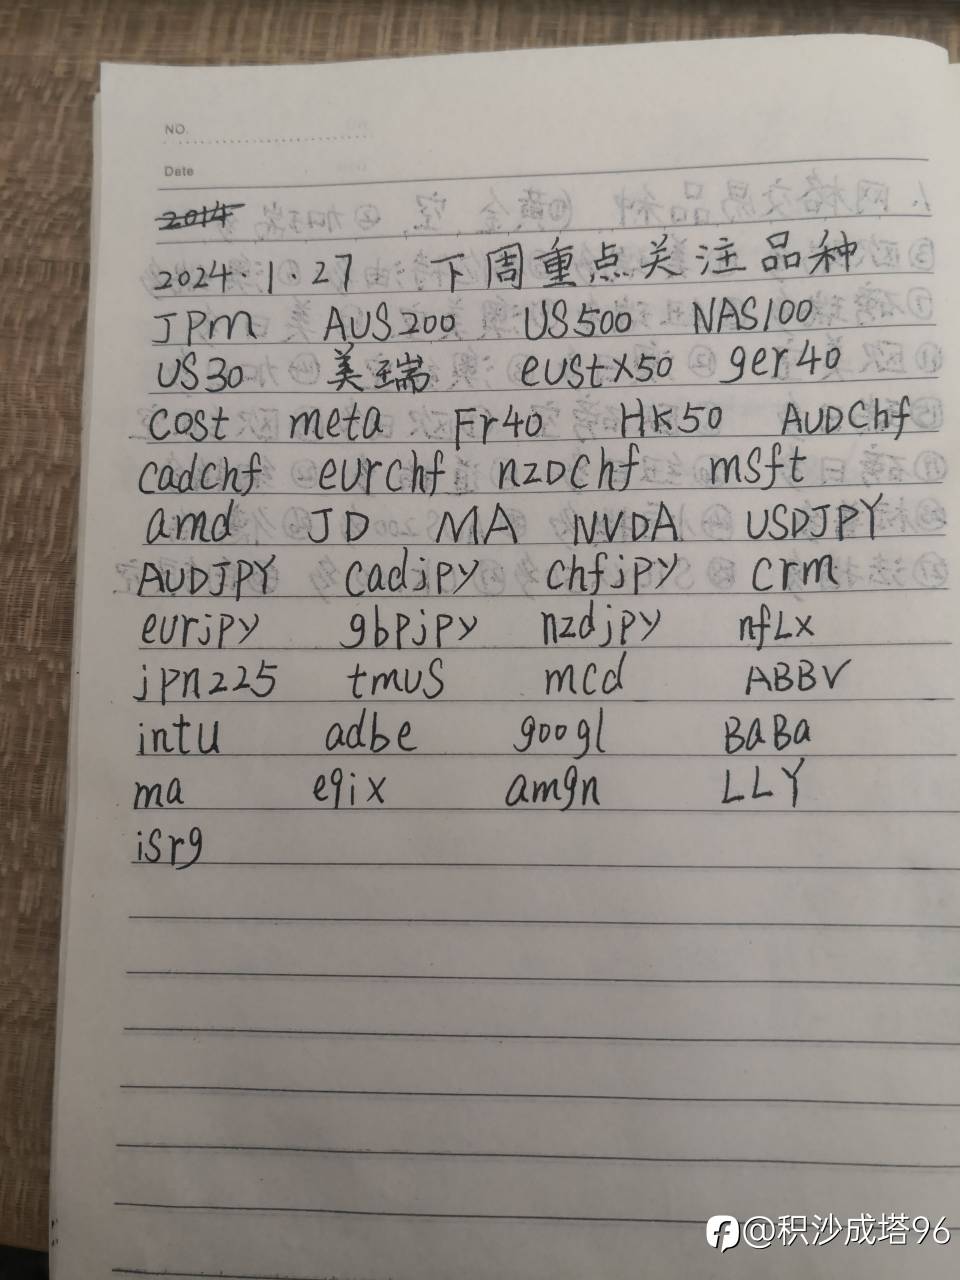 NO.
Date
2014
2024.1.27 下周重点关注品种
JPm AUS200 US500 NAS100
US30 美瑞 eustx50 ger40
cost meta Fr40 HK50 AUDChf
cadchf eurchf nzDchf msft
amd JD MA NVDA USDJPY
AUDJPY cadjpy chfjpy crm
eurjpy gbpjpy nzdjpy nfLx
jpn225 tmus mcd ABBV
intu adbe googl BaBa
ma eqix amgn LLY
isrg
@积沙成塔96